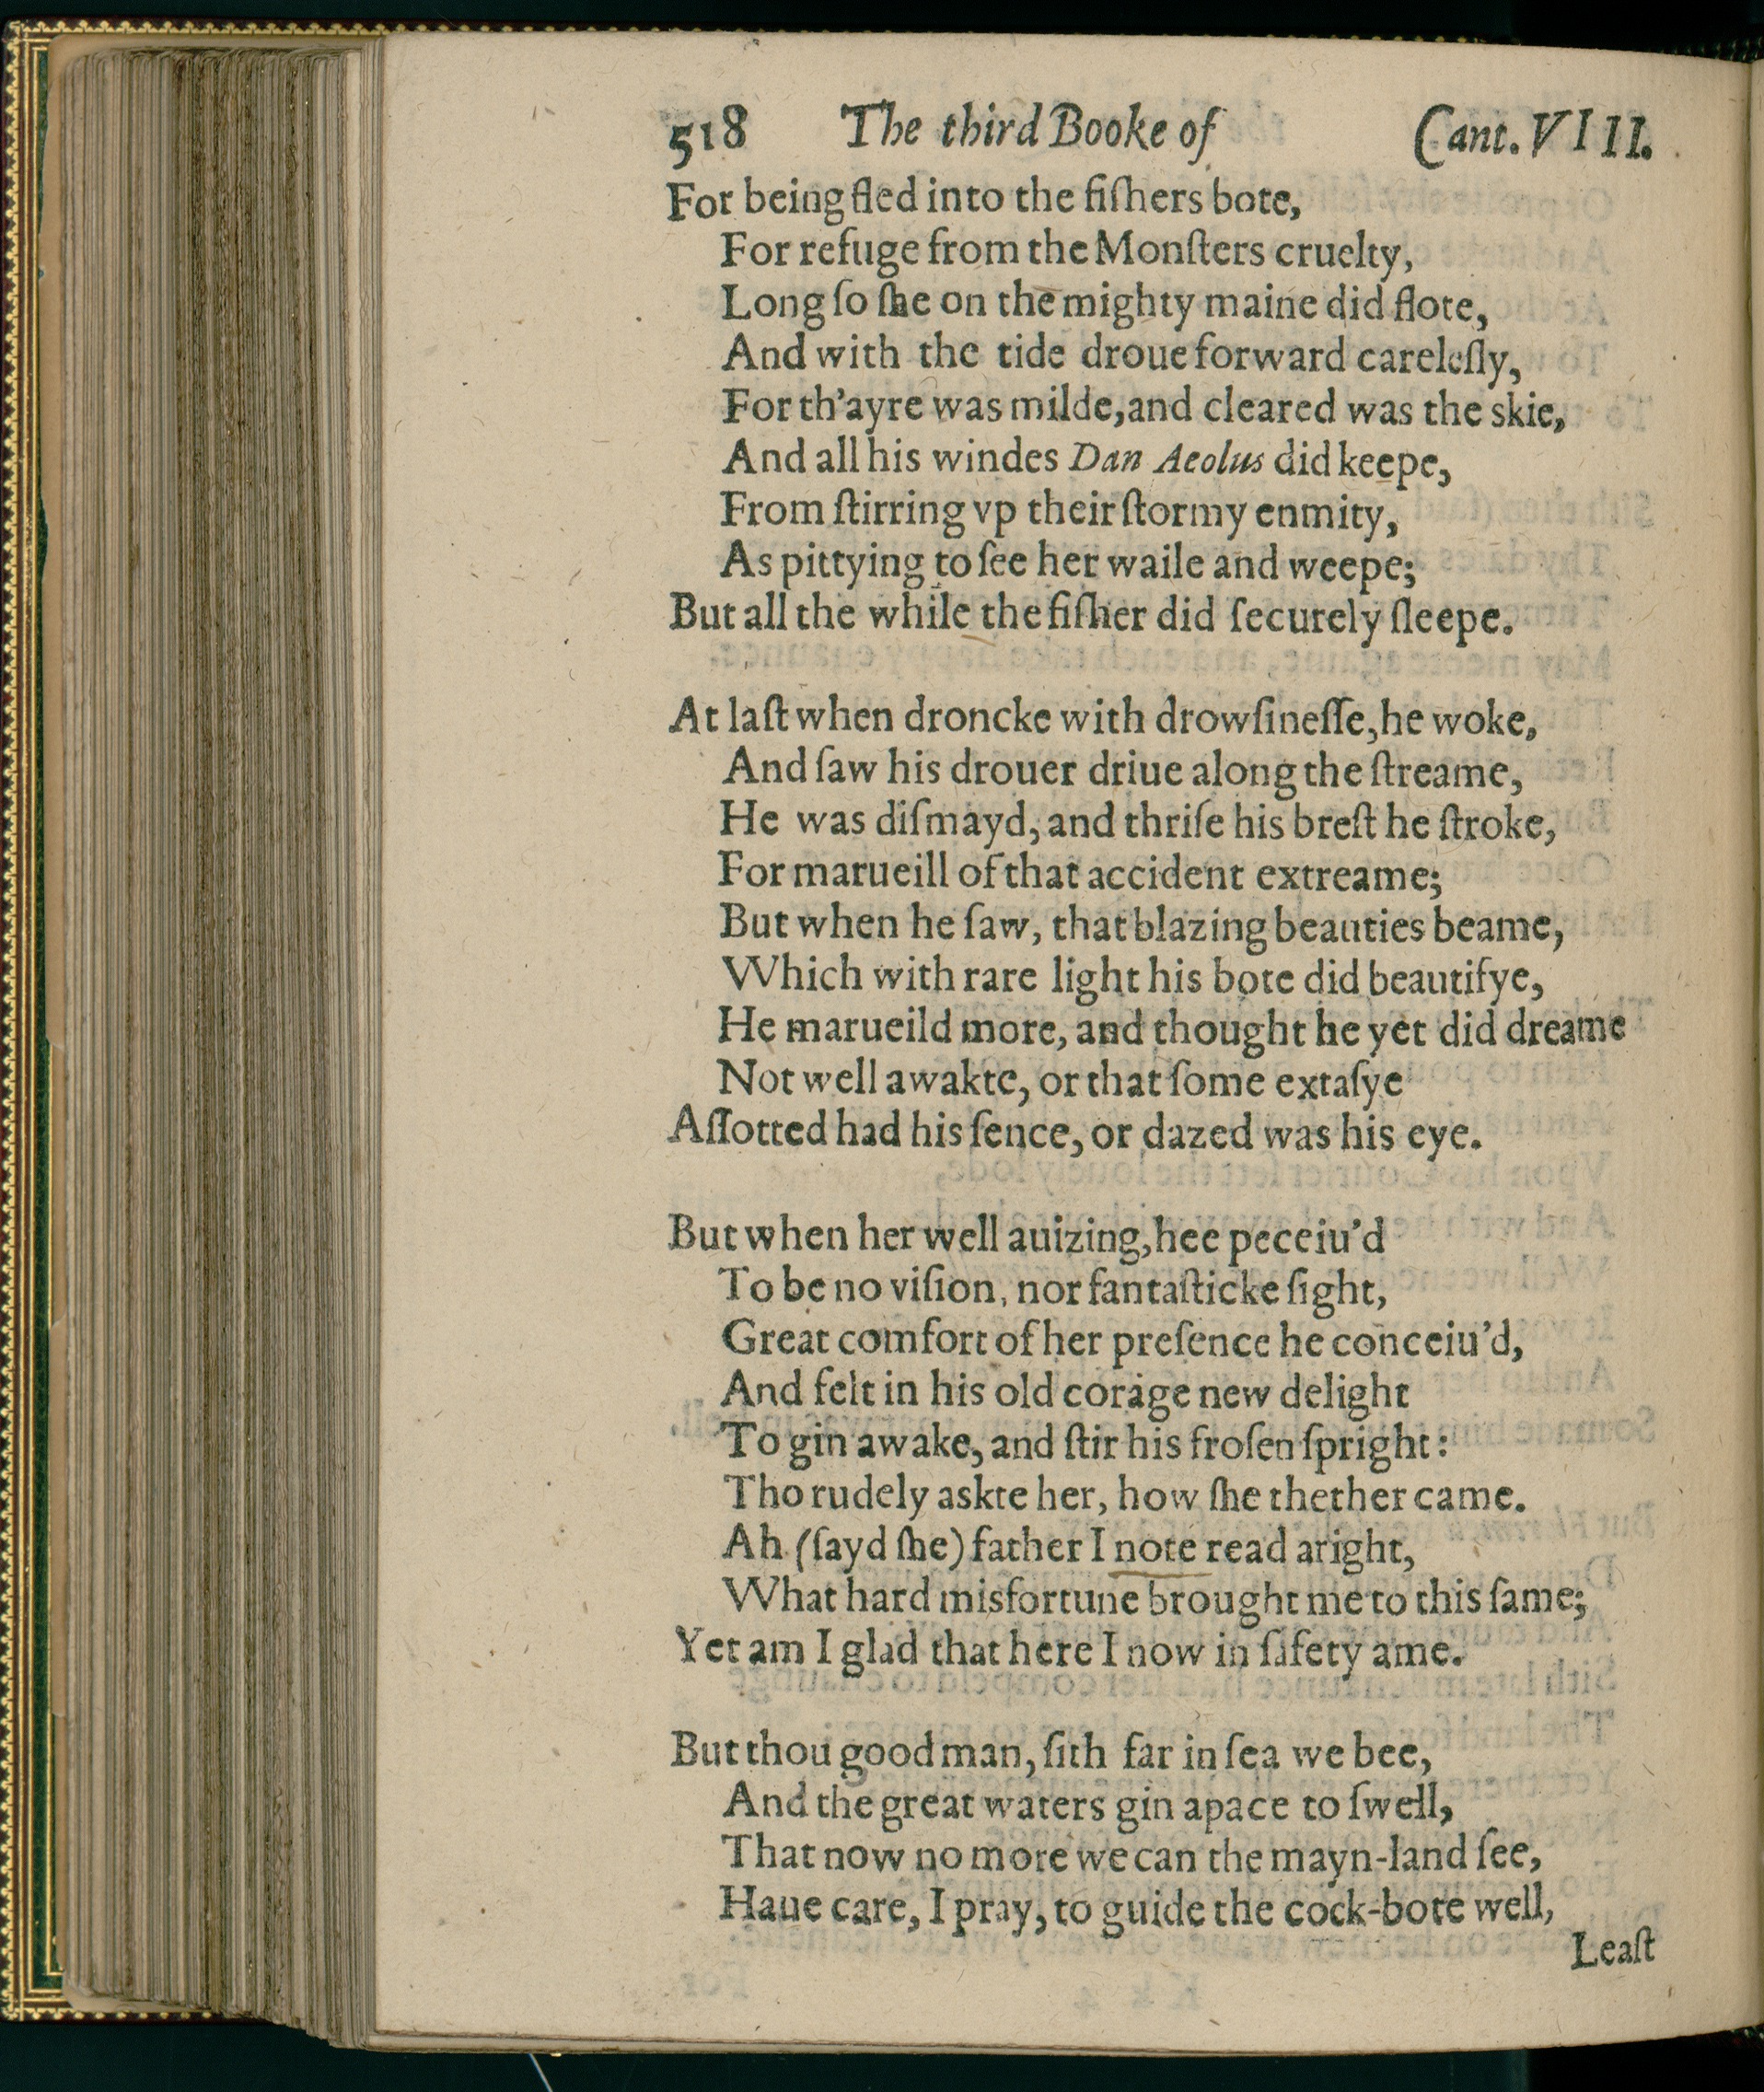 518 The third Booke of Cant. VIII.
For being fled into the fiſhers bote,
For refuge from the Monſters cruelty,
Long ſo ſhe on the mighty maine did flote,
And with the tide droue forward careleſly,
For th'ayre was milde, and cleared was the skie,
And all his windes Dan Aeolus did keepe,
From ſtirring vp their ſtormy enmity,
As pittying to ſee her waile and weepe;
But all the while the fiſher did ſecurely ſleepe.
At laſt when droncke with drowſineſſe, he woke,
And ſaw his drouer driue along the ſtreame,
He was diſmayd, and thriſe his breſt he ſtroke,
For marueill of that accident extreame;
But when he ſaw, that blazing beauties beame,
Which with rare light his bote did beautifye,
He marueild more, and thought he yet did dreame
Not well awakte, or that ſome extaſye
Aſſotted had his ſence, or dazed was his eye.
But when her well auizing, hee peceiu'd
To be no viſion, nor fantaſticke ſight,
Great comfort of her preſence he conceiu'd,
And felt in his old corage new delight
To gin awake, and ſtir his froſen ſpright:
Tho rudely askte her, how ſhe thether came.
Ah (ſayd ſhe) father I note read aright,
What hard misfortune brought me to this ſame;
Yet am I glad that here I now in ſafety ame.
But thou good man, ſith far in ſea we bee,
And the great waters gin apace to ſwell,
That now no more we can the mayn-land ſee,
Haue care, I pray, to guide the cock-bote well,
Leaſt